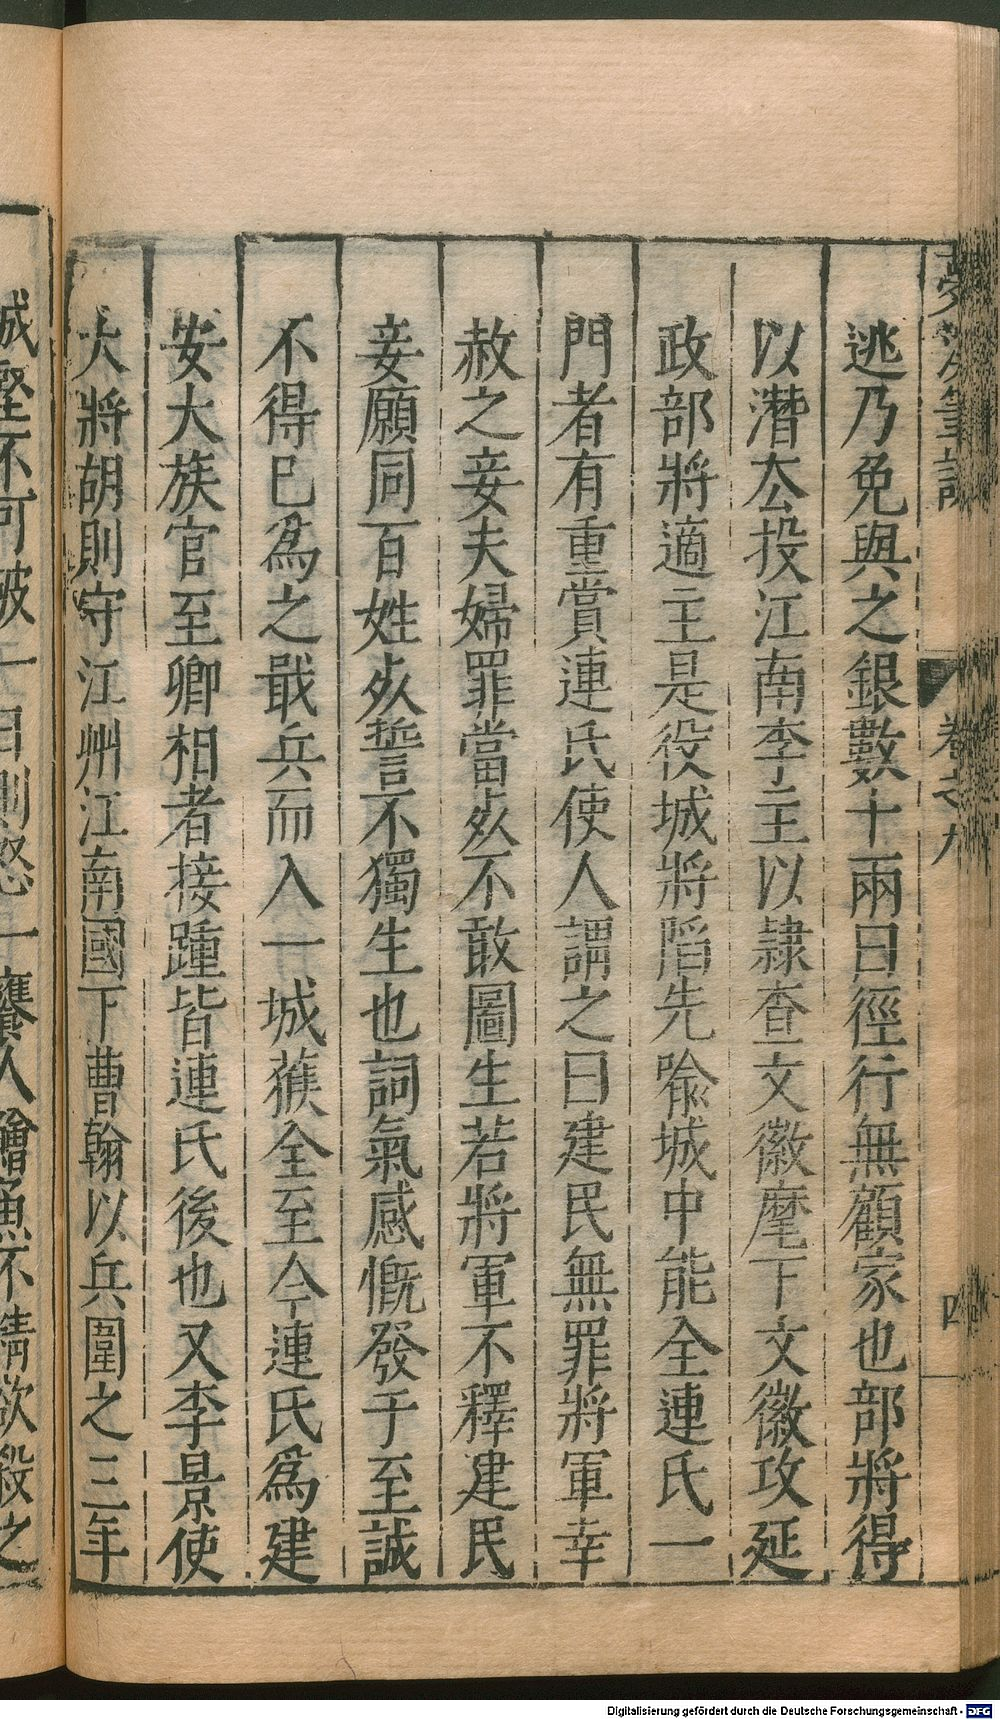 夢溪筆談 卷之九 四
逃乃免與之銀數十兩曰徑行無顧家也部將得
以潛厺投江南李主以隷查文徽麾下文徽攻延
政部將適主是役城將䧟先喻城中能全連氏一
門者有重賞連氏使人謂之曰建民無罪將軍幸
赦之妾夫婦罪當𣦸不敢圖生若將軍不釋建民
妾願同百姓𣦸誓不獨生也詞氣感慨發于至誠
不得已為之戢兵而入一城𫉬全至今連氏為建
安大族官至卿相者接踵皆連氏後也又李景使
大將胡則守江州江南國下曹翰以兵圍之三年
城堅不可破一日則怒一饔人鱠魚不精欲殺之
Digitalisierung gefördert durch die Deutsche Forschungsgemeinschaft - DFG